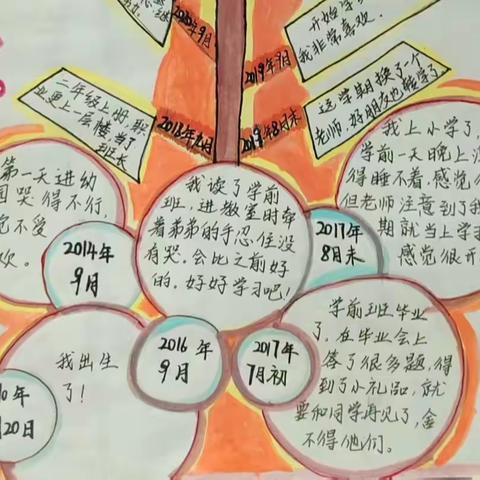 2020年9月
开始学
我非常喜欢.
2019年9月
二年级上册,职
业更上一层楼,当了
班长
2018年9月
2019年8月末
这学期换了个
老师,好朋友也转学了
第一天进幼
园哭得不行,
觉不爱
欢.
2014年
9月
我读了学前
班,进教室时牵
着弟弟的手忍住没
有哭.会比之前好
的,好好学习吧!
2017年
8月末
我上小学了,
学前一天晚上
得睡不着,感觉
但老师注意到了我
期就当上学
感觉很开
我出生
了!
10年
20日
2016年
9月
2017年
7月初
学前班毕业
了,在毕业会上
答了很多题,得
到了小礼品,就
要和同学再见了,舍
不得他们.